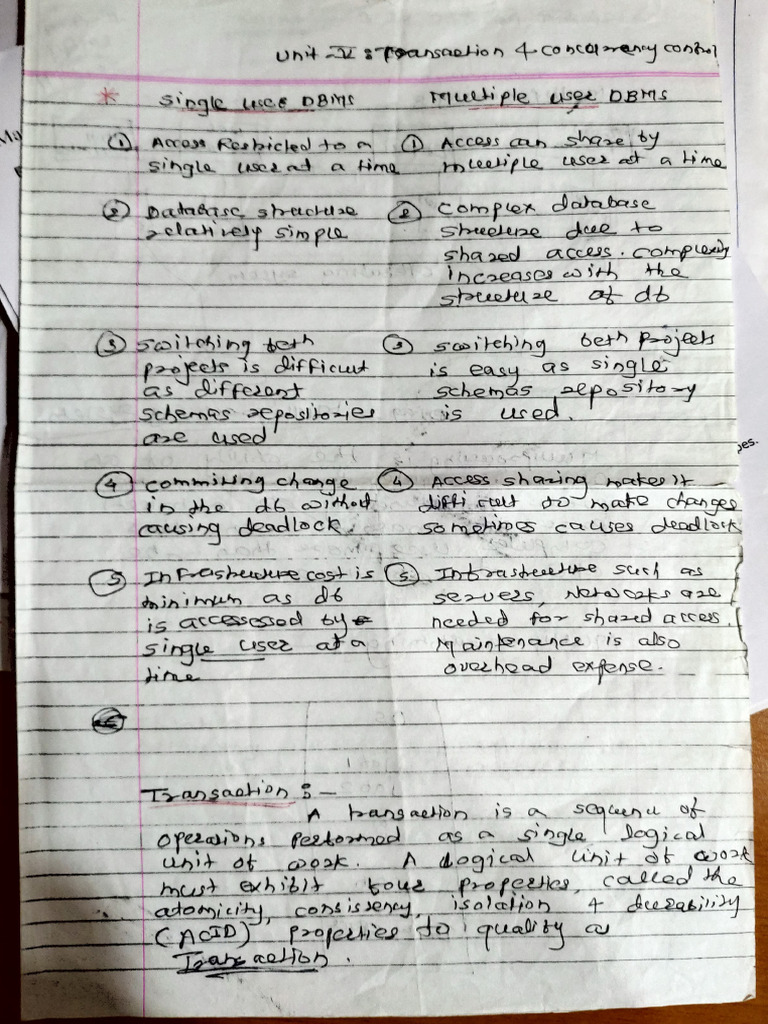 Unit - V : Transaction & concurrency control
* Single user DBMS
Multiple user DBMS
① Access Restricted to a
single user at a time
① Access can share by
multiple user at a time
② Database structure
relatively simple
② Complex database
structure due to
shared access. complexity
increases with the
structure of db
③ switching betn
projects is difficult
as different
schemas repositories
are used
③ switching betn projects
is easy as single
schemas repository
is used.
④ commiting change
in the db without
causing deadlock.
④ Access sharing makes it
difficult to make changes
sometimes causes deadlock
⑤ Infrastructure cost is
minimum as db
is accessesed by
single user at a
time
⑤ Infrastructure such as
servers, Networks are
needed for shared access.
Maintenance is also
overhead expense.
Transaction :-
A transaction is a sequence of
operations performed as a single logical
unit of work. A logical unit of work
must exhibit four properties, called the
atomicity, consistency, isolation & durability
(ACID) properties to quality as
Transaction.
es.